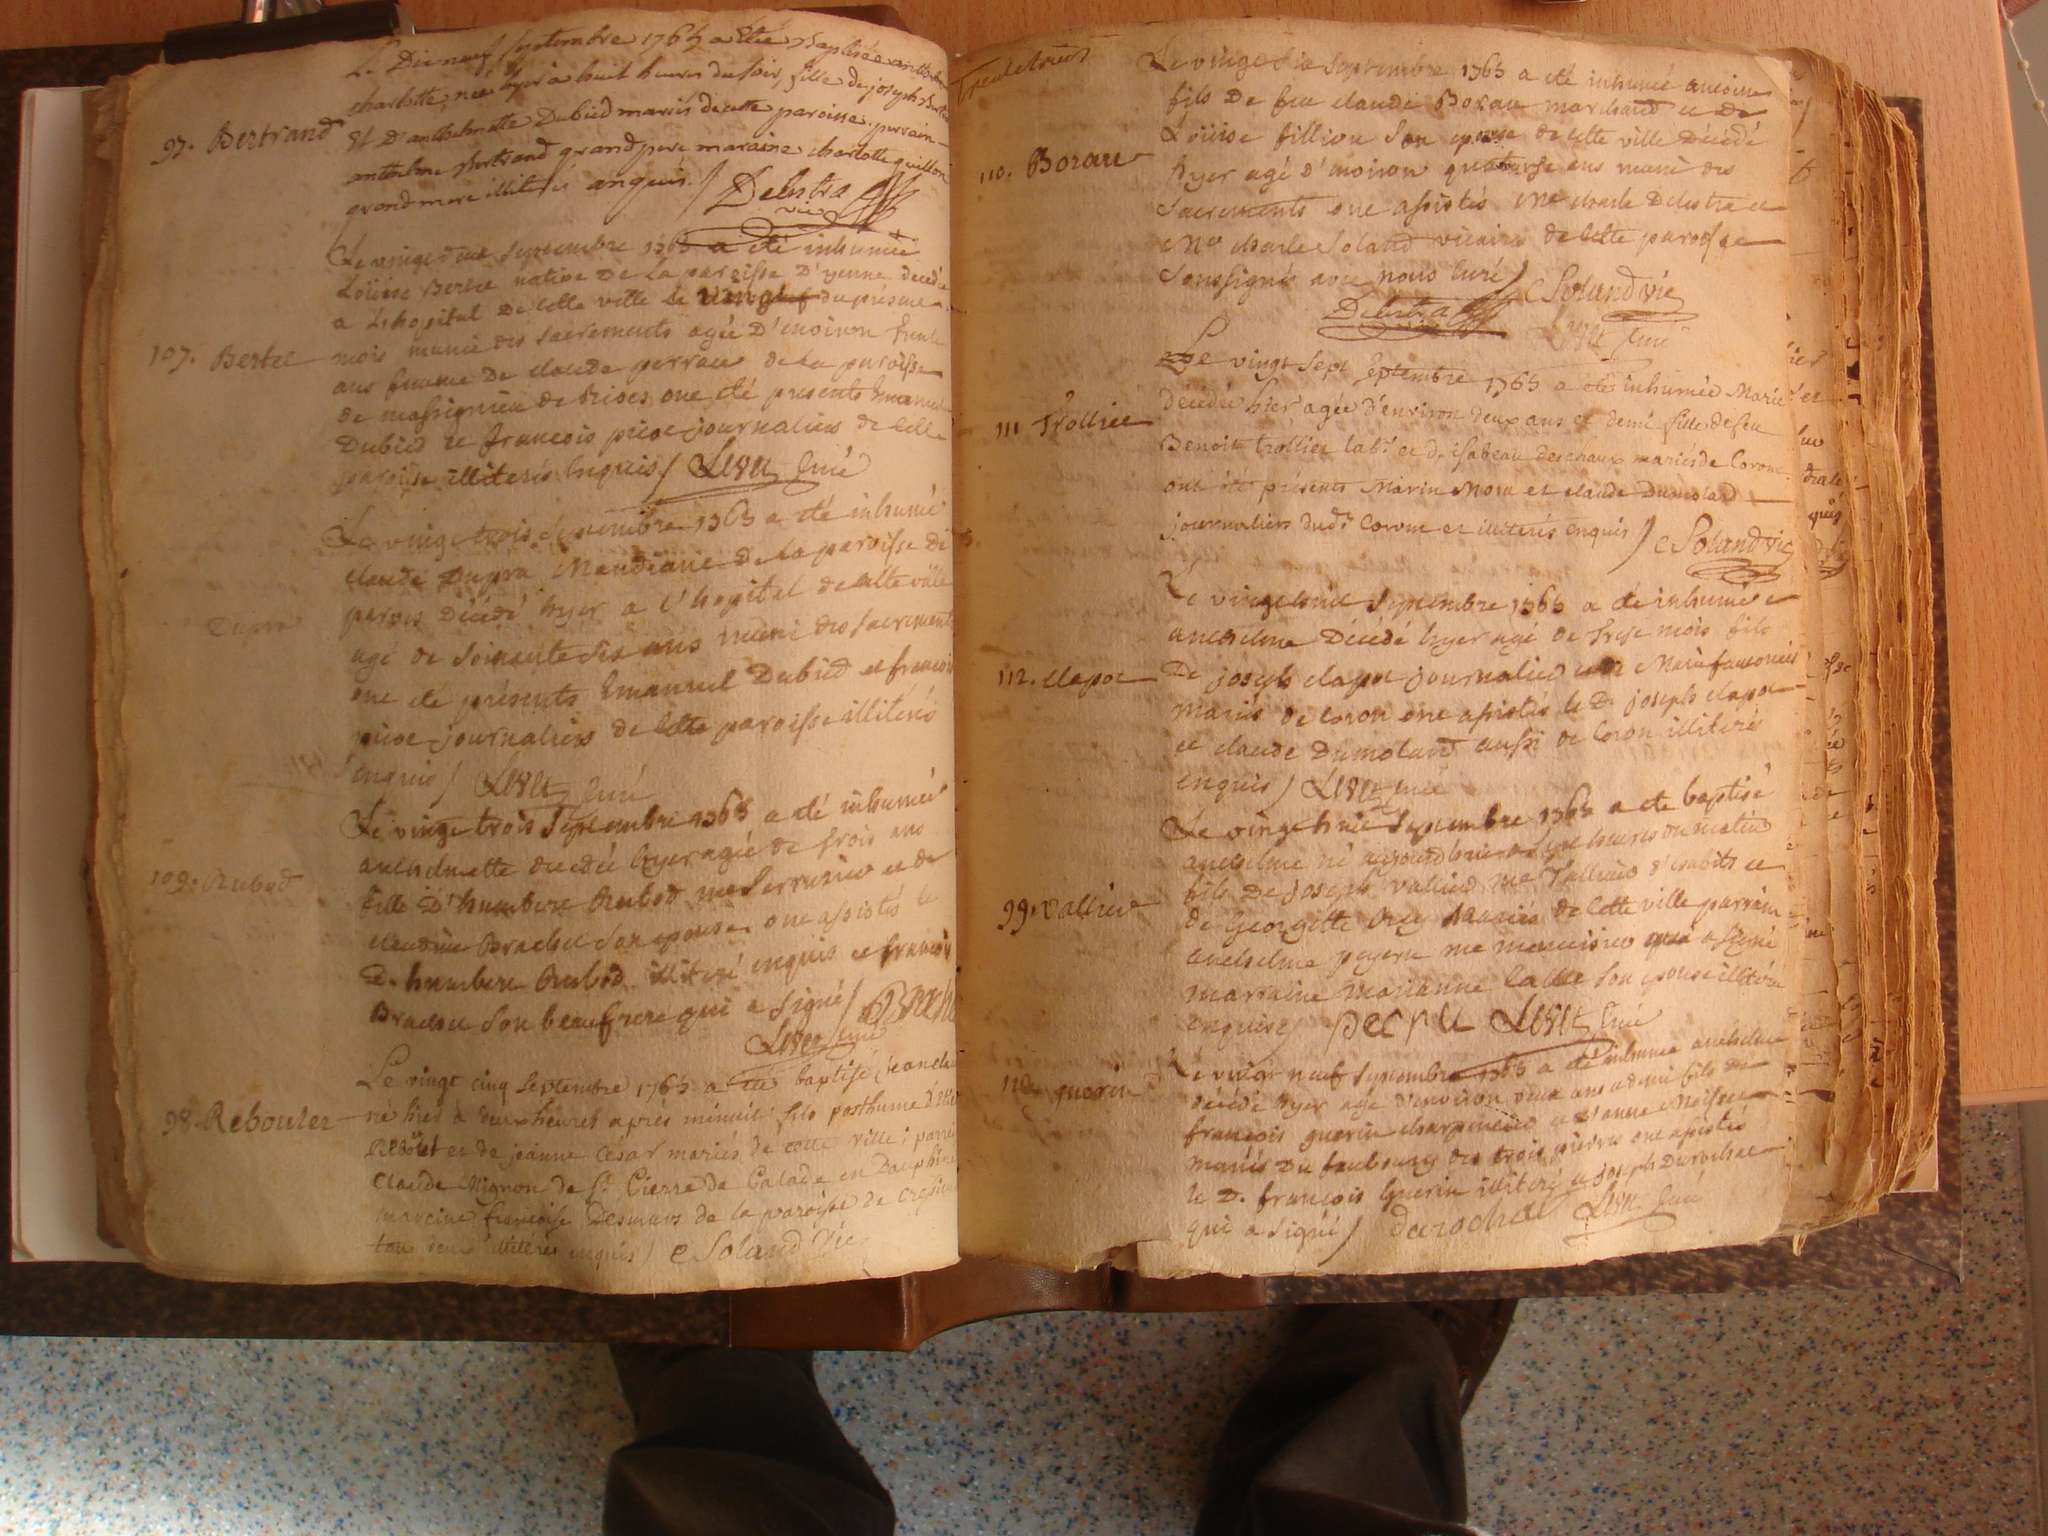 Le Dixneuf septembre 1765 a étée Baptisée
charlotte, née hyer a huit heures du soir, fille de joseph Bertrand
97. Bertrand
Et D'anthelmette Dubied mariés de cette paroisse. parrain
anthelme Bertrand grand pere maraine charlotte guillon
grand mere illiterés enquis. / Delestra
vic
Le vingt deux septembre 1765 a été inhumée
Loüise Bertet native De La paroisse D'yenne decedée
a Lhopital De cette ville le du présent
107. Bertet
mois munie des sacrements agée D'environ trente
ans femme De claude perraud de La paroisse
de massignieu de Rives ont été presents Emanuel
Dubied et françois piuoz journaliers de cette
paroisse illiterés Enquis / curé
Le vingt trois septembre 1765 a été inhumé
claude Dupra Mendiant De La paroisse De
Dupra
parves Décédé hyer a L'hopital de cette ville
agé de soixante six ans muni des sacrements
ont été présents Emanuel Dubied et françois
piuoz journaliers de cette paroisse illiterés
enquis / curé
Le vingt trois septembre 1765 a été inhumée
anthelmette decedée hyer agée de trois ans
109. Rubod
fille D'humbert Rubod me serrurier et de
claudine Brachet son epouse, ont assistés le
D. humbert Rubod illiteré enquis et françois
Brachet son beaufrere qui a signé / Brachet
curé
Le vingt cinq septembre 1765 a été baptisé jean
98. Reboulet
né hier a deux heures apres minuit fils posthume
Reboulet et de jeanne Cesar mariés de cette ville: parrein
claude Mignon de St. Pierre de Calade en Dauphiné
mareine françoise Desmurs de la paroisse de
tous deux illiterés enquis / Soland Vic
Le vingt six septembre 1765 a été inhumé antoine
fils De feu claude Borau marchand et De
110. Borau
Loüise fillion son epouse de cette ville Décédé
hyer agé d'environ quatorse ans muni des
sacrements ont assistés Mre charle Delestra et
Mre charle Soland vicaires de cette paroisse
soussignés avec nous curé / Soland vic
Delestra
curé
Le vingt sept septembre 1765 a été inhumée Marie
décédée hier agée d'environ deux ans et demi fille de feu
111 Trollier
Benoit trollier labr. et d. isabeau deschaux mariés de Coron
ont été présents Marin Mora et claude Dumolard
journaliers dudt. Coron et illiterés enquis / Soland vic
Le vingt huit septembre 1765 a été inhumé
anthelme Décédé hyer agé de trese mois fils
112. clapot
De joseph clapot journalier et de Marie
mariés de Coron ont assistés le D. joseph clapot
et claude Dumolard aussi de Coron illiterés
enquis / curé
Le vingt huit septembre 1765 a été baptisé
anthelme né aujourdhuy a heures du matin
fils De joseph vallier me Tailleur d'habits et
99. vallier
de Georgette mariés de cette ville parrain
anthelme payern me menuisier qui a signé
marraine marianne son epouse illiterée
enquise / curé
Le vingt neuf septembre 1765 a été inhumé anthelme
113. guerin
décédé hyer agé d'environ deux ans et demi fils de
françois guerin charpentier et d'anne
mariés Du faubourg des trois pierres ont assistés
le D. françois Guerin illiteré et joseph Durochat
qui a signé / durochat curé